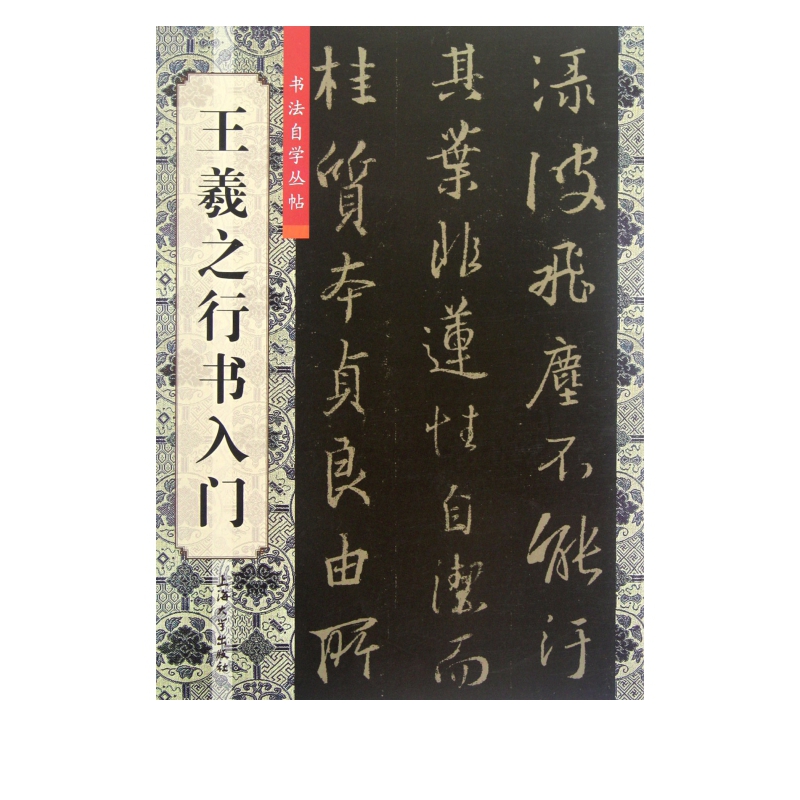 王羲之行书入门
书法自学丛帖
渌波飛塵不能汙
其葉非蓮性自潔而
桂質本貞良由所
上海大学出版社